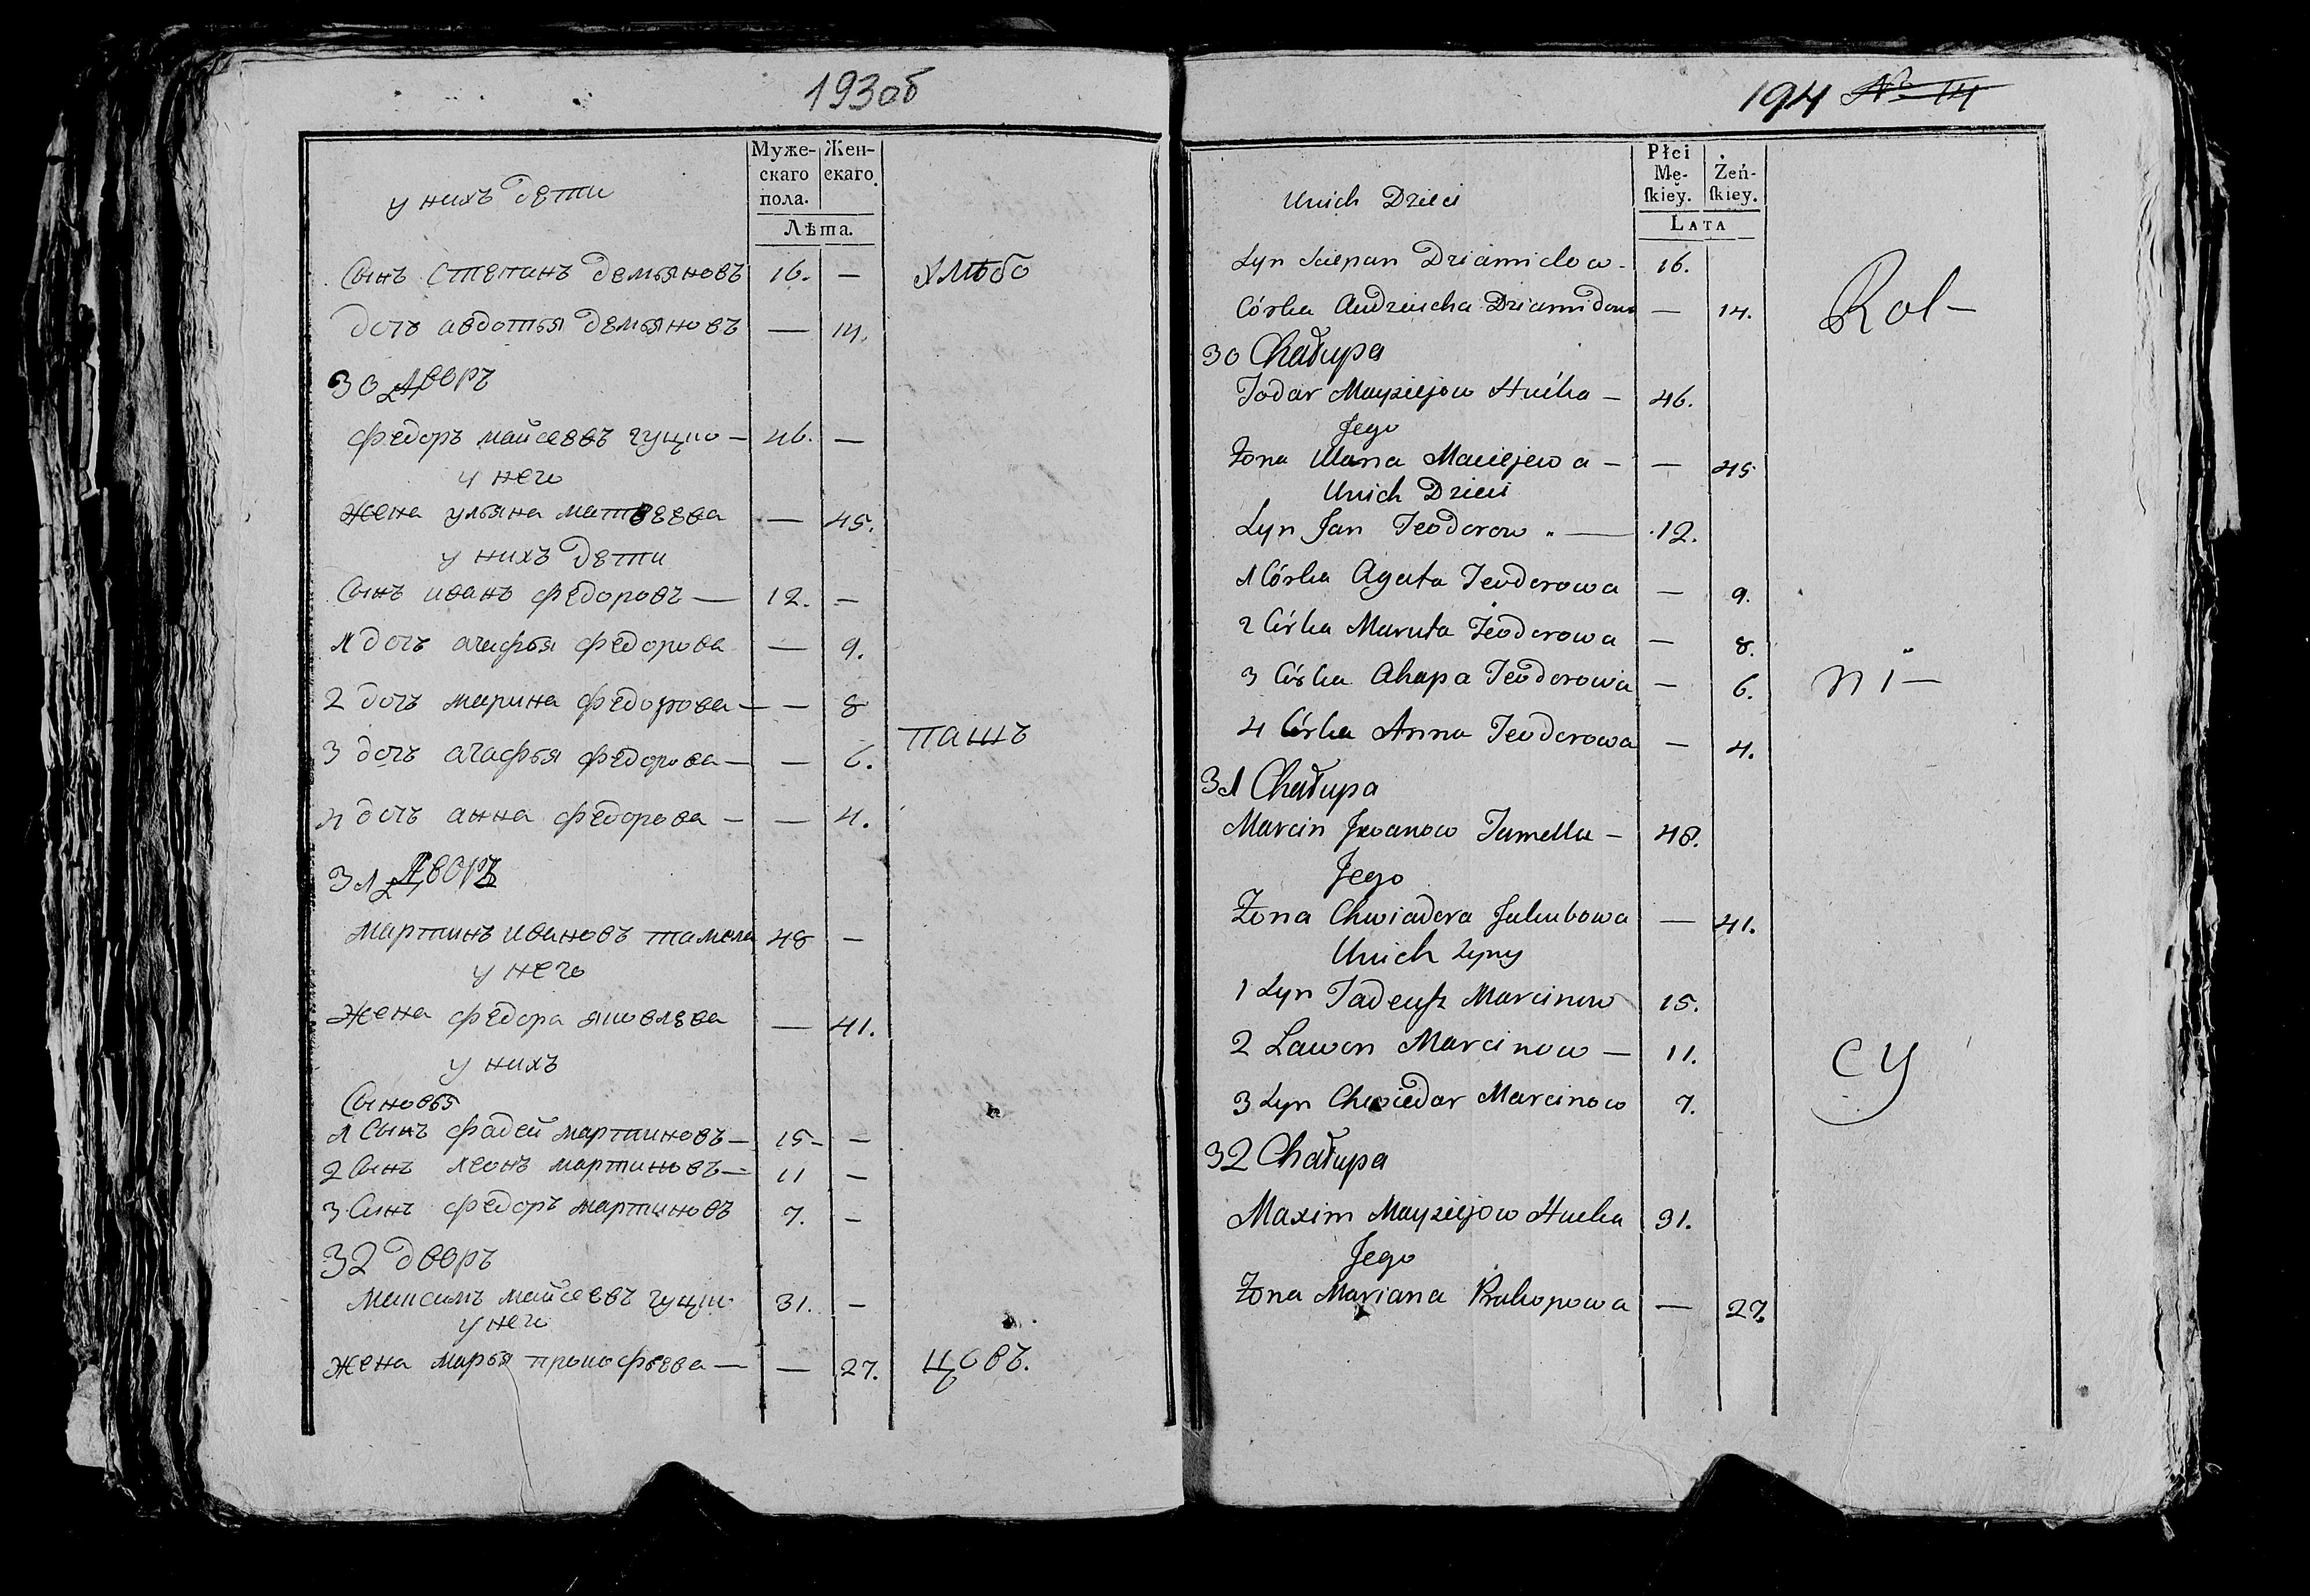 193об
Муже-
скаго
пола.
Жен-
скаго.
Лѣта.
у нихъ дети
Сынъ Степанъ демьяновъ 16. —
хлѣбо
дочь авдотья демьяновъ — 14.
30 Дворъ
федоръ майсеевъ гуцко — 46. —
у него
жена ульяна матвеева — 45.
у нихъ дети
Сынъ иванъ федоровъ — 12. —
1 дочь агафья федорова — 9.
2 дочь марина федорова — — 8
пашъ
3 дочь агафья федорова — — 6.
4 дочь анна федорова — — 4.
31 Дворъ
мартинъ ивановъ тамела 48 —
у него
жена федора яковлева — 41.
у нихъ
Сыновья
1 Сынъ фадей мартиновъ — 15 — —
2 Сынъ леонъ мартиновъ — 11 —
3 Сынъ федоръ мартиновъ 7. —
32 дворъ
максимъ майсеевъ гуцко 31. —
у него
жена марья прокофьева — — 27.
цовъ.
194 № 14
Płci
Mę-
skiey.
Żeń-
skiey.
Lata
Unich Dzieci
Syn Sciepan Dziamidow - 16.
Córka Audziucha Dziamidow — 14.
Rol-
30 Chałupa
Todar Mayziejow Hućka — 46.
Jego
Żona Ulana Maciejewa — — 45
Unich Dzieci
Syn Jan Teodorow — 12.
1 Córka Agata Teodorowa — 9.
2 Córka Maruta Teodorowa — 8.
3 Córka Ahapa Teodorowa — 6.
ni—
4 Córka Anna Teodorowa — 4.
31 Chałupa
Marcin Jwanow Tamella — 48.
Jego
Żona Chwiadora Jakubowa — 41.
Unich Syny
1 Syn Tadeusz Marcinow 15.
2 Lawon Marcinow — 11.
cy
3 Syn Chwiedar Marcinow 7.
32 Chałupa
Maxim Mayziejow Hucka 31.
Jego
Żona Mariana Prakopowa — 27.